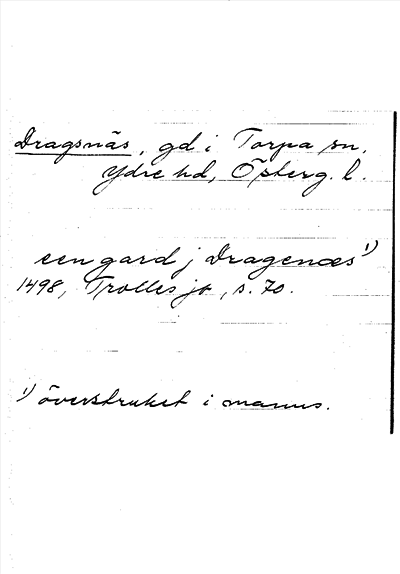 Dragsnäs, gd i Torpa sn,
Ydre hd, Österg. l.
een gard j Dragenæs 1)
1498, Trolles jb, s. 70.
1) överstruket i manus.